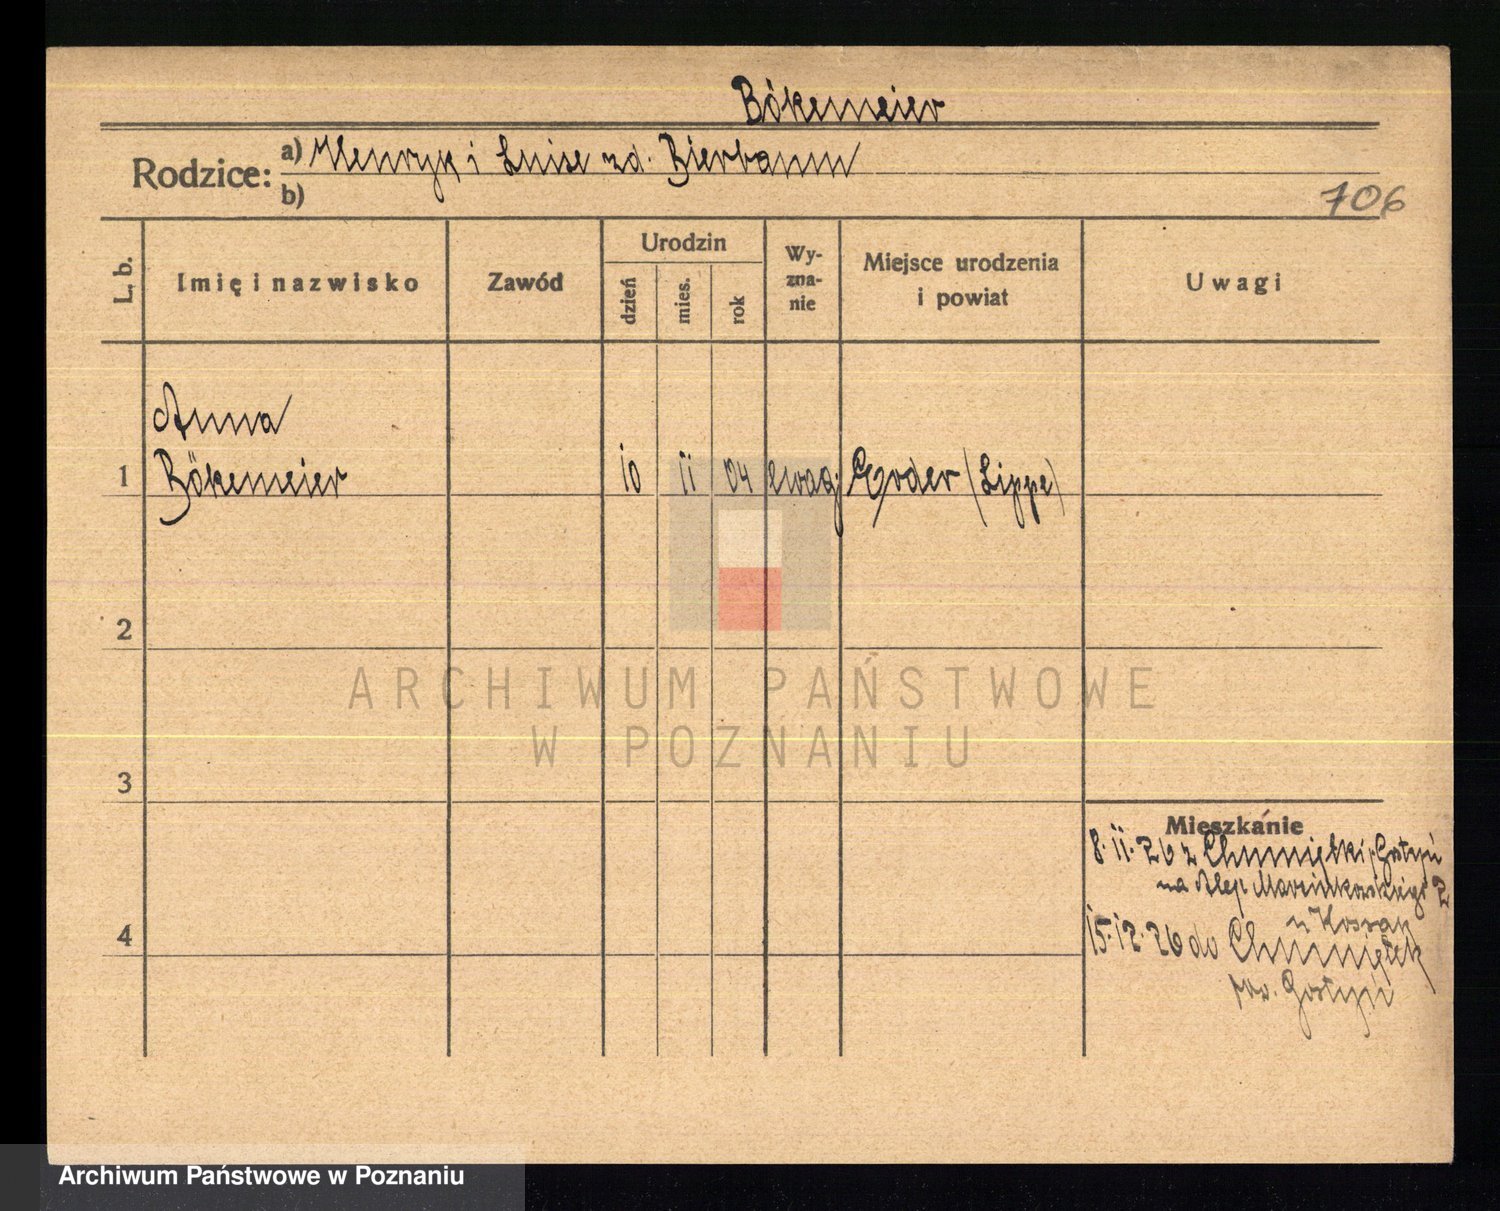 Bökemeier
Rodzice: a) Henryk i Luise zd. Bierbaum
b)
706
L. b. Imię i nazwisko Zawód Urodzin dzień mies. rok Wyznanie Miejsce urodzenia i powiat Uwagi
Anna
1 Bökemeier 10 11 04 ewag. Erder (Lippe)
2
ARCHIWUM PAŃSTWOWE
W POZNANIU
3
Mieszkanie
8.11.26 z Chumiętki, Gostyń
na Alej Marcinkowskiego 2
u Kossak
15.12.26 do Chumiętek
4
pow. Gostyń
Archiwum Państwowe w Poznaniu